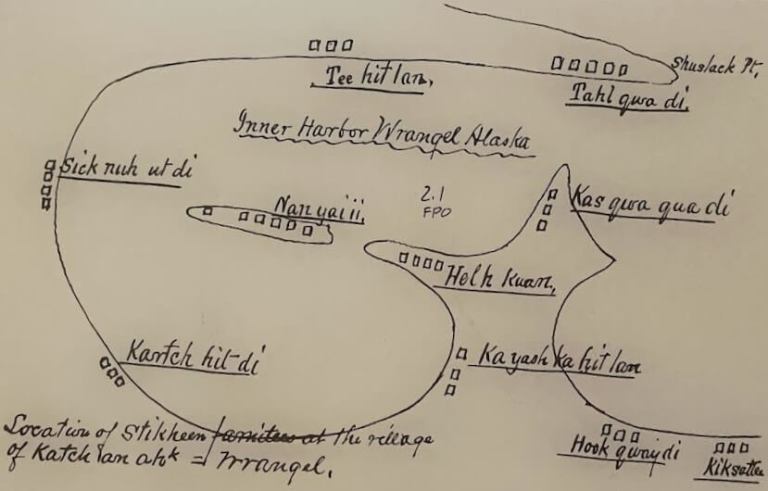 Tee hit lan,
Shuslack Pt,
Tahl qwa di,
Inner Harbor Wrangel Alaska
Sick nuh ut di
Nan yai ii,
2.1
FPO
Kas qwa qua di
Helh Kuan,
Kartch hit-di
Ka yash ka hit lan
Location of Stikheen families at the village
of Katch lan ahk = Wrangel.
Hook qwaydi